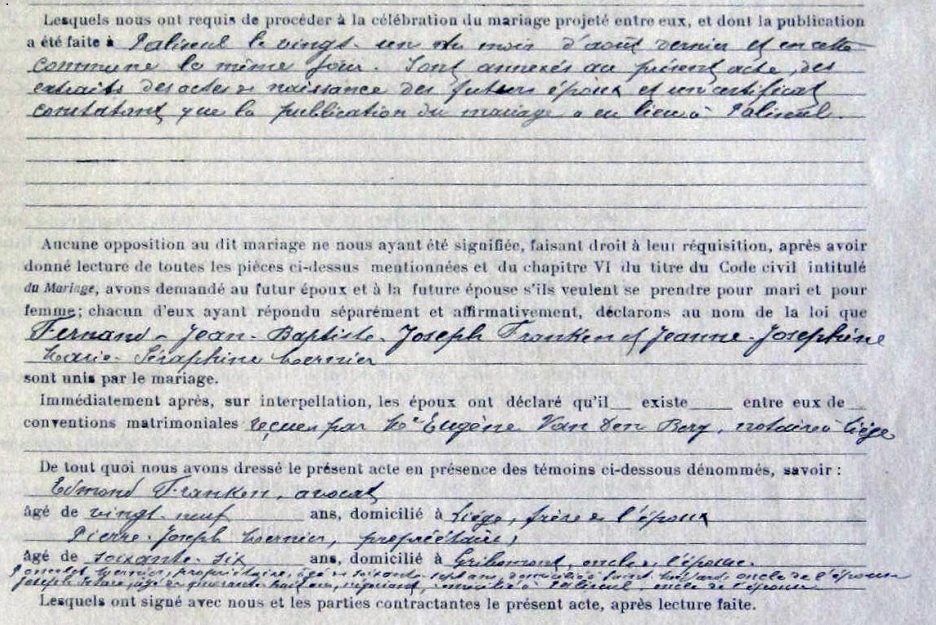 Lesquels nous ont requis de procéder à la célébration du mariage projeté entre eux, et dont la publication
a été faite à Paliseul le vingt-un du mois d'août dernier et en cette
commune le même jour. Sont annexés au présent acte, des
extraits des actes de naissance des futurs époux et un certificat
constatant que la publication du mariage a eu lieu à Paliseul.
Aucune opposition au dit mariage ne nous ayant été signifiée, faisant droit à leur réquisition, après avoir
donné lecture de toutes les pièces ci-dessus mentionnées et du chapitre VI du titre du Code civil intitulé
du Mariage, avons demandé au futur époux et à la future épouse s'ils veulent se prendre pour mari et pour
femme; chacun d'eux ayant répondu séparément et affirmativement, déclarons au nom de la loi que
Fernand-Jean-Baptiste-Joseph Franken et Jeanne-Joséphine
Marie-Séraphine
sont unis par le mariage.
Immédiatement après, sur interpellation, les époux ont déclaré qu'il existe entre eux de
conventions matrimoniales reçues par Me Eugène Van den Berg, notaire à Liége
De tout quoi nous avons dressé le présent acte en présence des témoins ci-dessous dénommés, savoir :
Edmond Franken, avocat
âgé de vingt-neuf ans, domicilié à Liége, frère de l'époux
Pierre-Joseph propriétaire,
âgé de soixante-six ans, domicilié à oncle de l'épouse.
propriétaire, âgé de soixante-sept ans, domicilié à oncle de l'épouse
Joseph âgé de quarante-huit ans, domicilié à Paliseul, oncle de l'épouse
Lesquels ont signé avec nous et les parties contractantes le présent acte, après lecture faite.